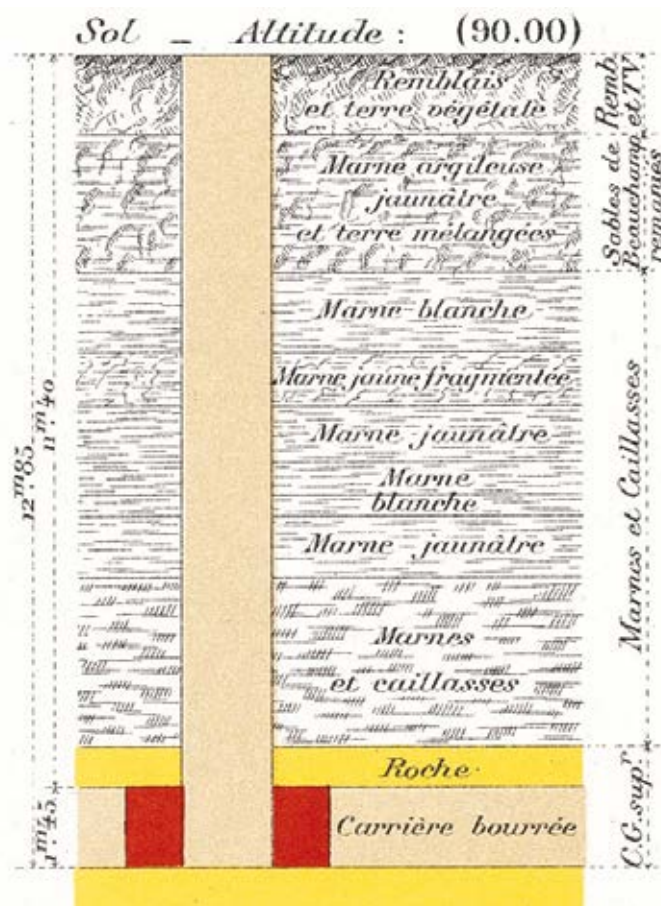 Sol _ Altitude : (90.00)
Remblais
et terre végétale
Marne argileuse
jaunâtre
et terre mélangées
Marne blanche
Marne jaune fragmentée
Marne jaunâtre
Marne
blanche
Marne jaunâtre
Marnes
et caillasses
Roche
Carrière bourrée
12m.85
11m.40
1m.45
Remb.
et T.V.
Sables de
Beauchamp
remaniés
Marnes et Caillasses
C.G.supr